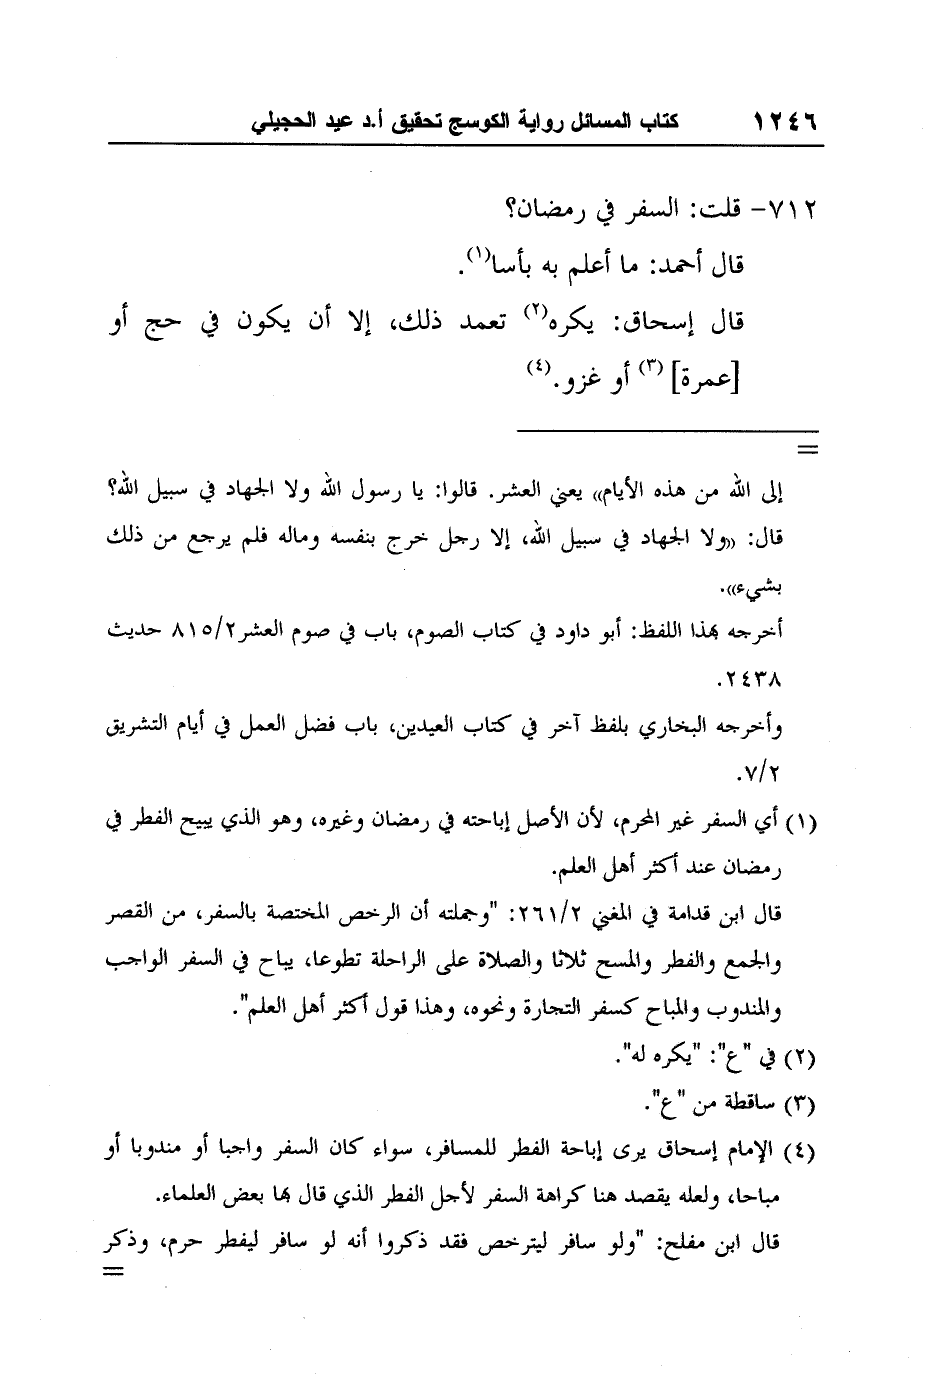 ١٢٤٦ كتاب المسائل رواية الكوسج تحقيق أ.د عيد الحجيلي
٧١٢- قلت: السفر في رمضان؟
قال أحمد: ما أعلم به بأسا(١).
قال إسحاق: يكره(٢) تعمد ذلك، إلا أن يكون في حج أو
[عمرة](٣) أو غزو.(٤)
=
إلى الله من هذه الأيام» يعني العشر. قالوا: يا رسول الله ولا الجهاد في سبيل الله؟
قال: «ولا الجهاد في سبيل الله، إلا رجل خرج بنفسه وماله فلم يرجع من ذلك
بشيء».
أخرجه بهذا اللفظ: أبو داود في كتاب الصوم، باب في صوم العشر٨١٥/٢ حديث
٢٤٣٨.
وأخرجه البخاري بلفظ آخر في كتاب العيدين، باب فضل العمل في أيام التشريق
٧/٢.
(١) أي السفر غير المحرم، لأن الأصل إباحته في رمضان وغيره، وهو الذي يبيح الفطر في
رمضان عند أكثر أهل العلم.
قال ابن قدامة في المغني ٢٦١/٢: "وجملته أن الرخص المختصة بالسفر، من القصر
والجمع والفطر والمسح ثلاثا والصلاة على الراحلة تطوعا، يباح في السفر الواجب
والمندوب والمباح كسفر التجارة ونحوه، وهذا قول أكثر أهل العلم".
(٢) في "ع": "يكره له".
(٣) ساقطة من "ع".
(٤) الإمام إسحاق يرى إباحة الفطر للمسافر، سواء كان السفر واجبا أو مندوبا أو
مباحا، ولعله يقصد هنا كراهة السفر لأجل الفطر الذي قال بها بعض العلماء.
قال ابن مفلح: "ولو سافر ليترخص فقد ذكروا أنه لو سافر ليفطر حرم، وذكر
=